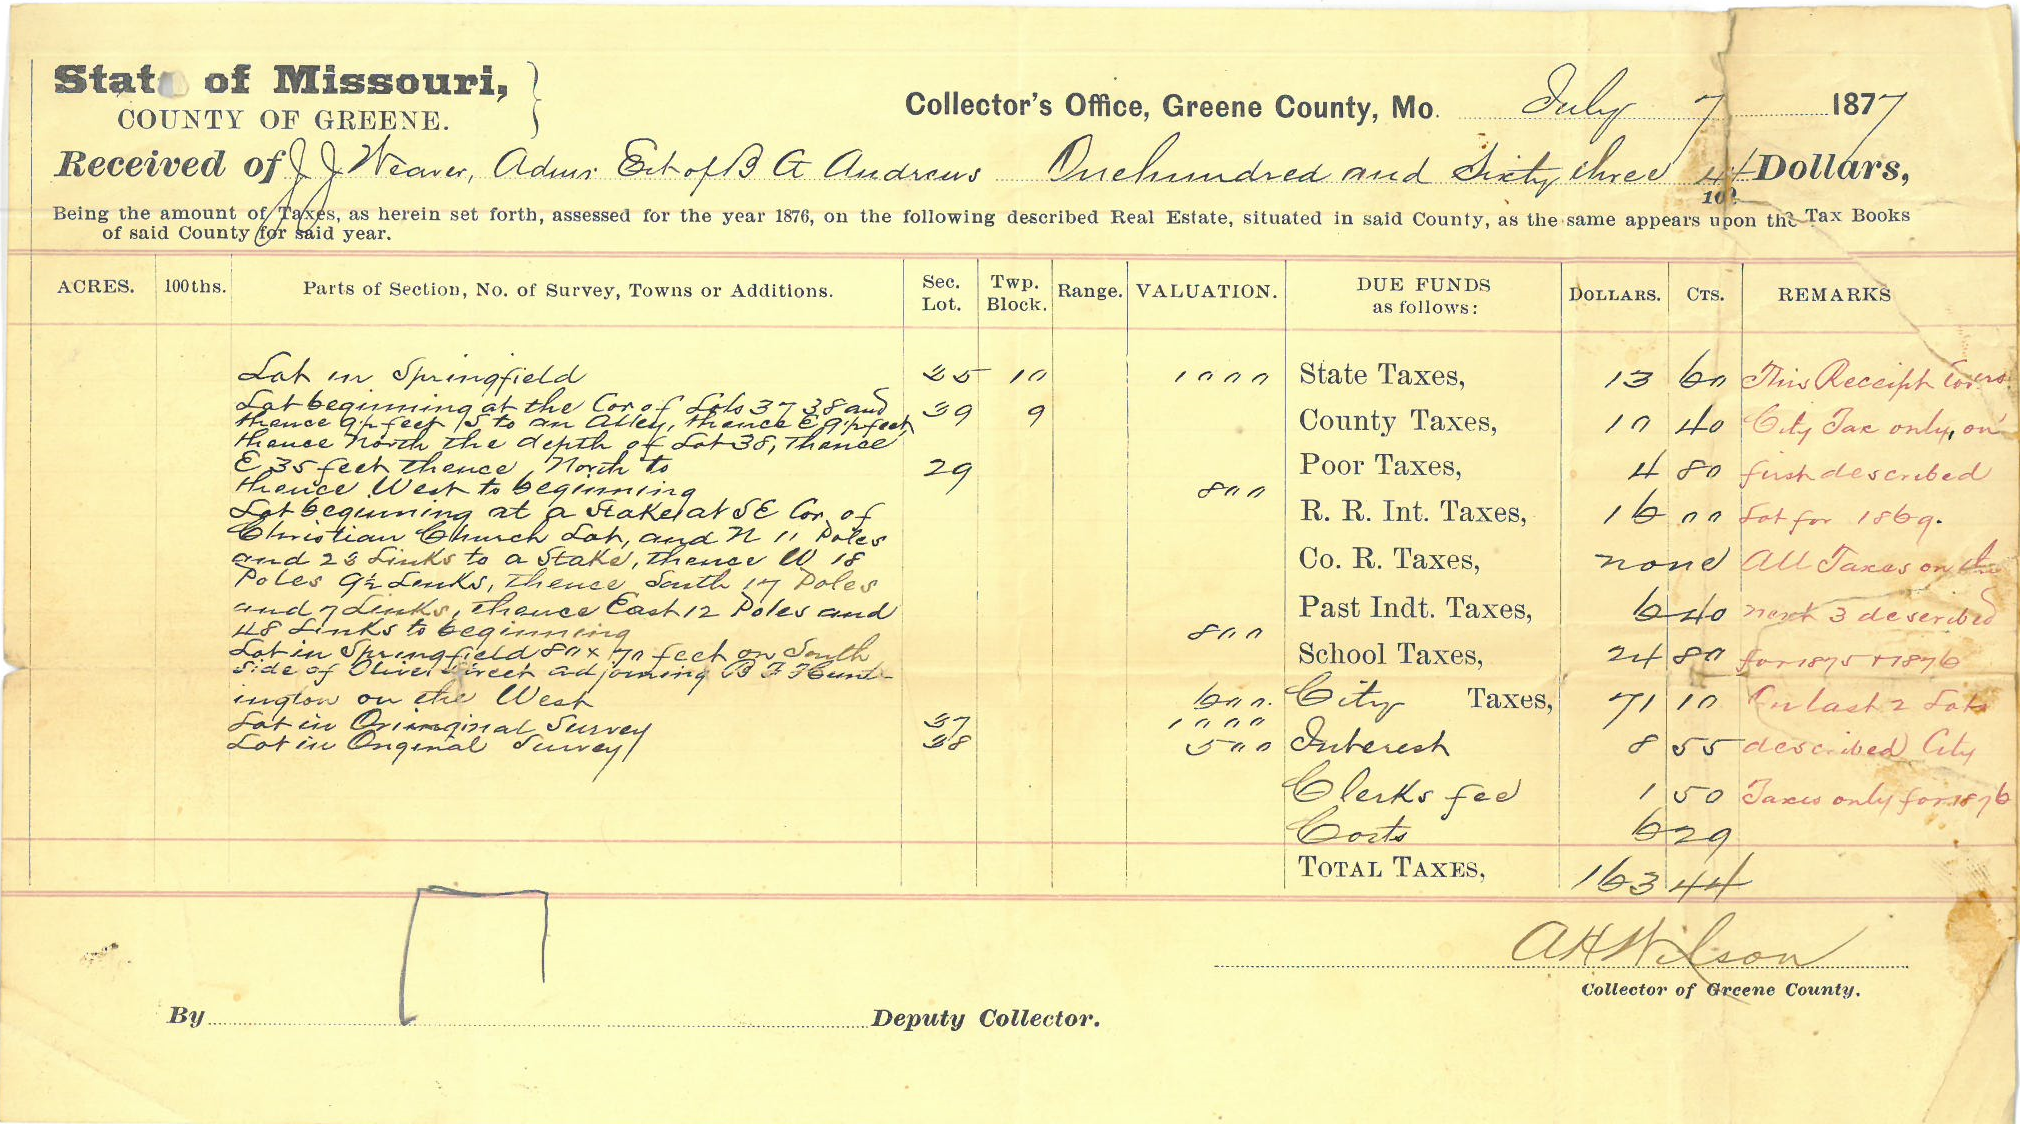 State of Missouri,
COUNTY OF GREENE.
Collector's Office, Greene County, Mo. July 7 1877
Received of J J Weaver, Admr Est of B A Andrews Onehundred and Sixty three 44/100 Dollars,
Being the amount of Taxes, as herein set forth, assessed for the year 1876, on the following described Real Estate, situated in said County, as the same appears upon the Tax Books
of said County for said year.
ACRES. 100ths. Parts of Section, No. of Survey, Towns or Additions. Sec. Lot. Twp. Block. Range. VALUATION. DUE FUNDS as follows: DOLLARS. CTS. REMARKS
Lot in Springfield 35 10 1000 State Taxes, 13 60 This Receipt covers
Lot beginning at the Cor of Lots 37 38 and 39 9
thence 9½ feet S to an Alley, thence E 9½ feet, County Taxes, 10 40 City Tax only, on
thence North the depth of Lot 38, thence
E 35 feet thence North to 29 Poor Taxes, 4 80 first described
thence West to beginning 800
Lot beginning at a Stake at SE Cor of R. R. Int. Taxes, 16 00 Lot for 1869.
Christian Church Lot, and N 11 Poles
and 23 Links to a Stake, thence W 18 Co. R. Taxes, none All Taxes on the
Poles 9½ Links, thence South 17 Poles
and 7 Links, thence East 12 Poles and Past Indt. Taxes, 6 40 next 3 described
48 Links to beginning 800
Lot in Springfield 80 x 70 feet on South School Taxes, 24 80 for 1875 + 1876
side of Olive Street adjoining B F Hunt-
ington on the West 600. City Taxes, 71 10 On last 2 Lots
Lot in Orimginal Survey 37 1000
Lot in Original Survey 38 500 Interest 8 55 described City
Clerks fee 1 50 Taxes only for 1876
Costs 6 29
TOTAL TAXES, 163 44
A H Wilson
Collector of Greene County.
By Deputy Collector.